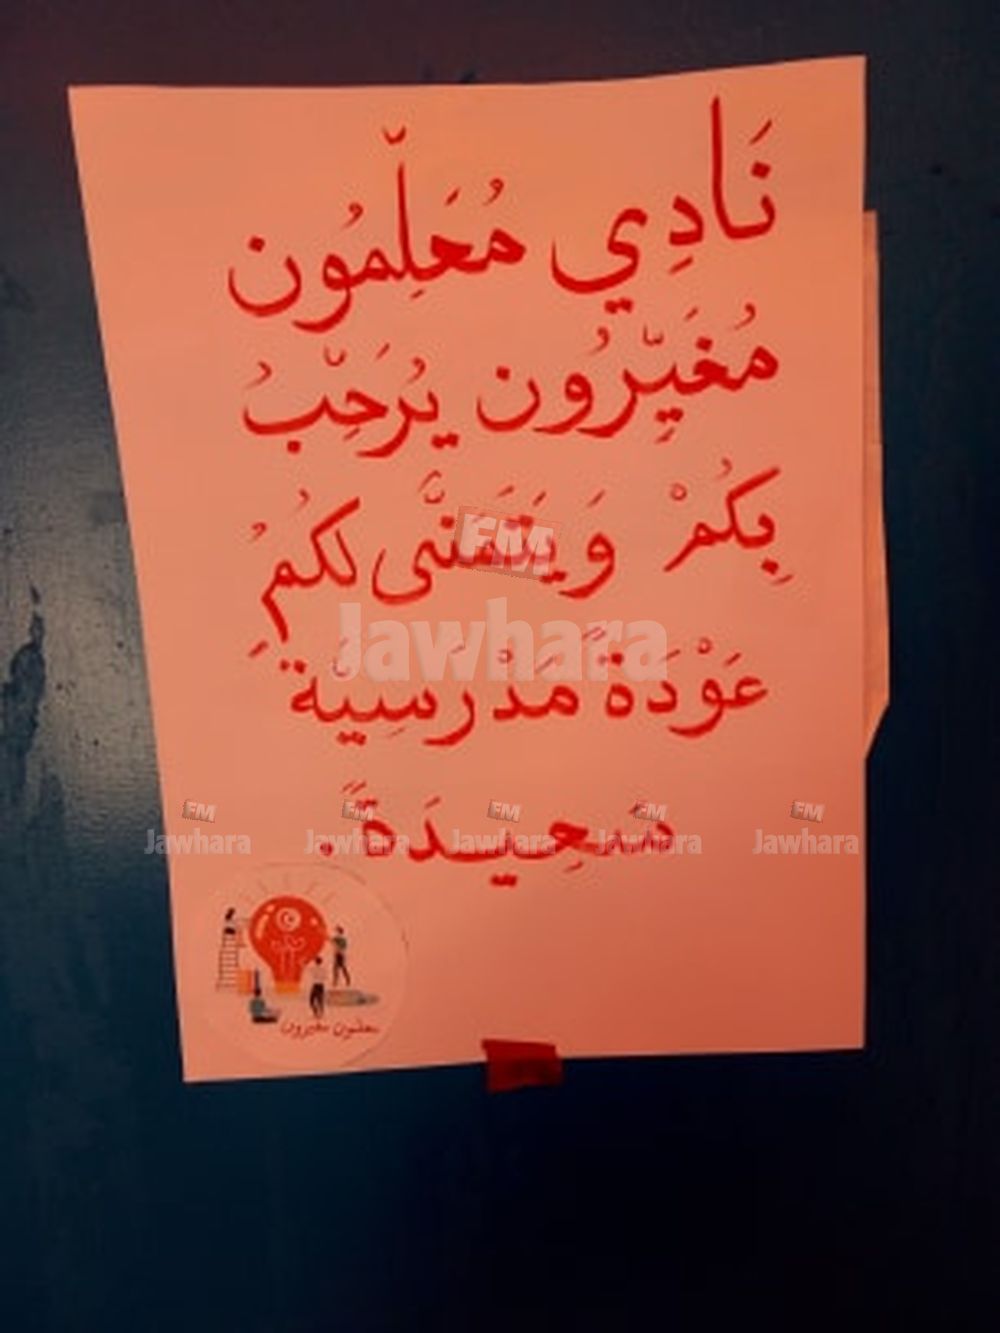 نَادِي مُعَلِّمُون
مُغَيِّرُون يُرَحِّبُ
بِكُمْ وَيَتَمَنَّى لكُمُ
عَوْدَةً مَدْرَسِيَّة
سَعِيدَةً.
معلمون مغيرون
FM
Jawhara
FM FM FM FM FM
Jawhara Jawhara Jawhara Jawhara Jawhara